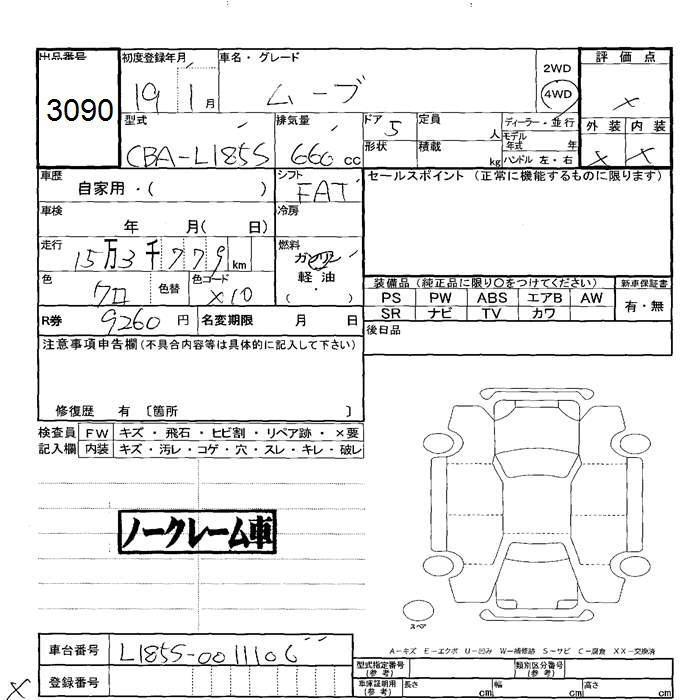 出品番号 初度登録年月 車名・グレード 評価点
3090 19 1月 ムーブ 2WD 4WD ×
型式 排気量 ドア 5 定員 人 ディーラー・並行 外装 内装
CBA-L185S 660cc 形状 積載 kg モデル年式 年 × ×
ハンドル 左・右
車歴 自家用・( ) シフト FAT セールスポイント(正常に機能するものに限ります)
車検 年 月( 日) 冷房
走行 15万3千779km 燃料 ガソリン
色 クロ 色替 色コード X10 軽油・( )
装備品(純正品に限り○をつけてください) 新車保証書
PS PW ABS エアB AW 有・無
SR ナビ TV カワ
R券 9260円 名変期限 月 日 後日品
注意事項申告欄(不具合内容等は具体的に記入して下さい)
修復歴 有 〔箇所 〕
検査員 FW キズ・飛石・ヒビ割・リペア跡・×要
記入欄 内装 キズ・汚レ・コゲ・穴・スレ・キレ・破レ
ノークレーム車
スペア
A−キズ E−エクボ U−凹み W−補修跡 S−サビ C−腐食 XX−交換済
車台番号 L185S-0011106
型式指定番号(参考) 類別区分番号(参考)
× 登録番号 車庫証明用(参考) 長さ cm 幅 cm 高さ cm